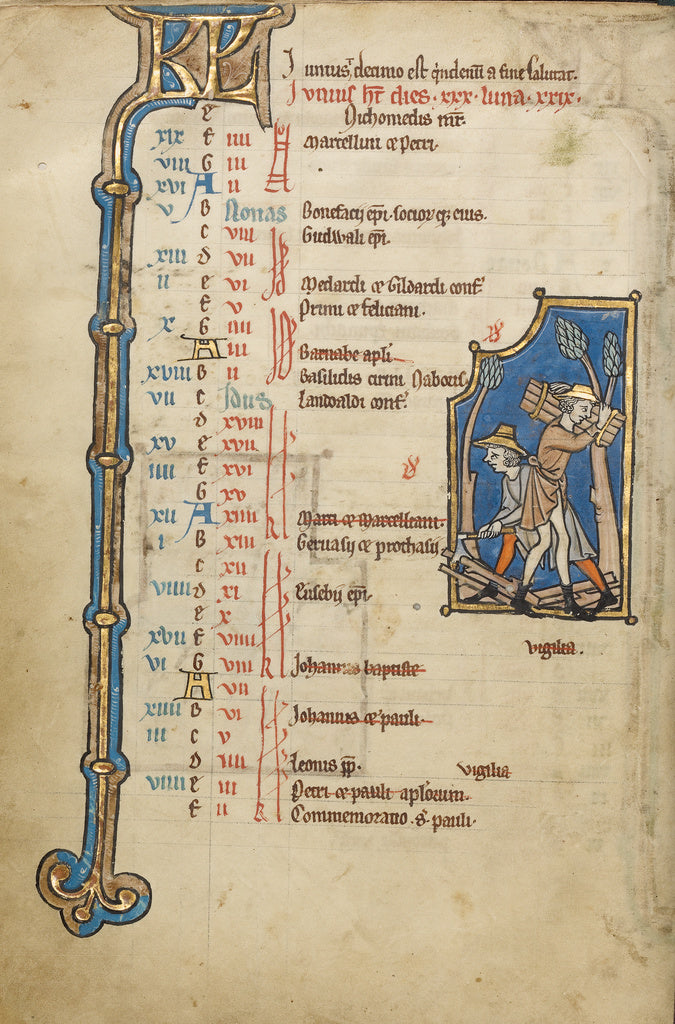 KL Junius decimo est quindenti a fine salutat.
Junius ht dies. xxx. luna. xxix.
e Nichomedis mr.
xix f iiii Marcellini et Petri.
viii G iii
xvi A ii
v B Nonas Bonefacii epi. socior q; eius.
c viii Gudwali epi.
xiii d vii
ii e vi Medardi et Gildardi conf.
f v Primi et feliciani.
x G iiii
A iii Barnabe apli.
xviii B ii Basilidis cirini Naboris
vii c Idus Landoaldi conf.
d xviii
xv e xvii
iiii f xvi
G xv
xii A xiiii Marci et Marcelliani.
i B xiii Geruasii et prothasii
c xii
viiii d xi Eusebii epi.
e x
xvii f viiii vigilia.
vi G viii Johannis baptiste
A vii
xiiii B vi Johannis et pauli.
iii c v
d iiii Leonis pp. vigilia
viiii e iii Petri et pauli aplorum.
f ii Commemoratio. s. pauli.